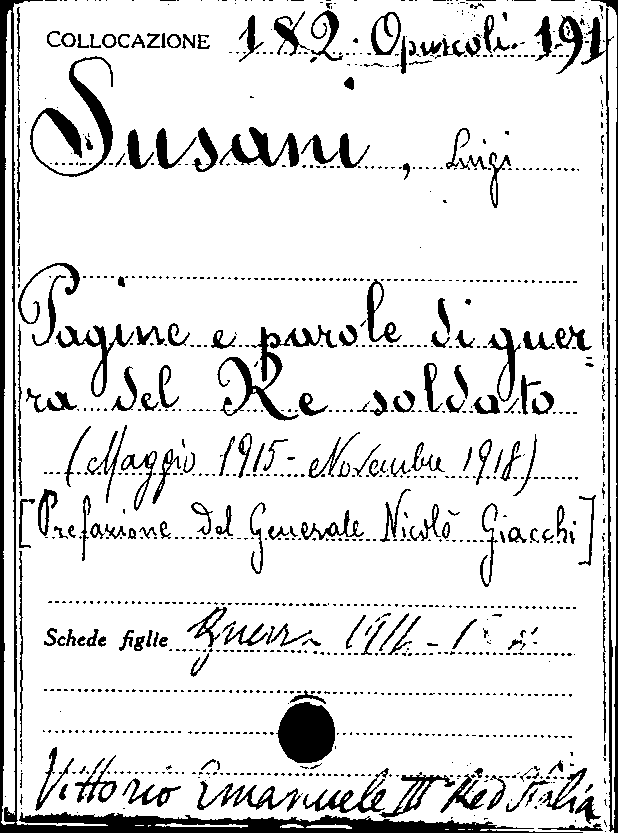 COLLOCAZIONE 182. Opuscoli. 191
Susani, Luigi
Pagine e parole di guer=
ra del Re soldato
(Maggio 1915 - Novembre 1918)
[Prefazione del Generale Nicolò Giacchi]
Schede figlie Guerra
Vittorio Emanuele III Re d'Italia